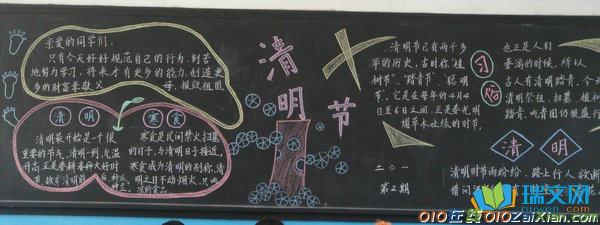 亲爱的同学们，
只有今天好好规范自己的行为，刻苦
地努力学习，将来才有更多的能力，创造更
多的财富来敬父母、报效祖国。
清明
清明最开始是一个很
重要的节气，清明一到，气温
升高，正是春耕春种大好时
寒食
寒食是民间禁火扫墓
的日子，与清明日子接近，
寒食成为清明的别称，清
明之日不动烟火，只吃
凉的食品
清明节
清明节已有两千多
年的历史，古时你"植
树节"、"踏青节"、"聪明
节"。它是在每年的4月4
日至6日之间，正是春光明
媚草木吐绿的时节，
二〇一
第2期
习俗
也正是人们
春游的时候，所以
古人有清明踏青、今天
清明祭祖、扫墓、植树
踏青、吹青团仍般盛行
清明
清明时节雨纷纷，路上行人欲断
借问
瑞文网
ruiwen.com
010在线010zaixian.com